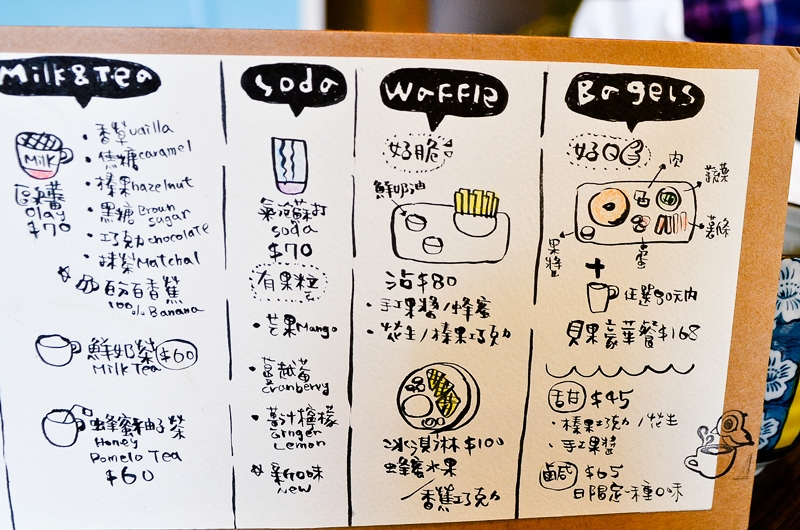 Milk & Tea
Milk
歐蕾
olay
$70
香草 vailla
焦糖 caramel
榛果 hazelnut
黑糖 Brown
sugar
巧克力 chocolate
抹茶 Matchal
百分百香蕉
100% Banana
鮮奶茶 $60
Milk Tea
蜂蜜柚子茶
Honey
Pomelo Tea
$60
Soda
氣泡蘇打
soda
$70
有果粒
芒果 Mango
蔓越莓
cranberry
薑汁檸檬
Ginger
Lemon
新口味
New
Waffle
好脆
鮮奶油
沾$80
手工果醬/蜂蜜
花生/榛果巧克力
冰淇淋$100
蜂蜜水果
/香蕉巧克力
Bagels
好QQ
肉
蔬菜
薯條
果醬
蛋
+
任選80元內
貝果豪華餐$168
甜 $45
榛果巧克力/花生
手工果醬
鹹 $65
日限定一種口味